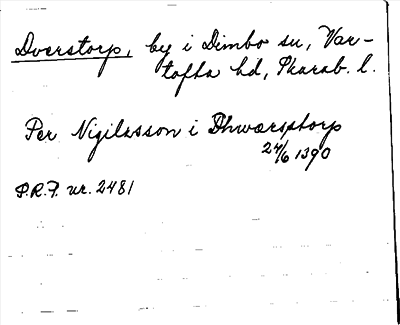 Dverstorp, by i Dimbo sn, Var-
tofta hd, Skarab. l.
Per Nigilsson i Dhwærsstorp
24/6 1390
P.R.F. nr. 2481